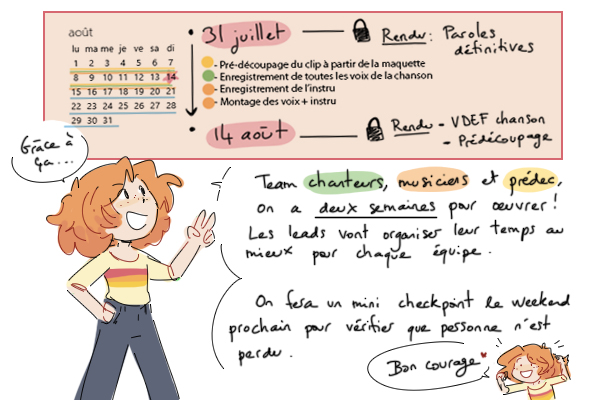 août
lu ma me je ve sa di
1 2 3 4 5 6 7
8 9 10 11 12 13 14
15 16 17 18 19 20 21
22 23 24 25 26 27 28
29 30 31
• 31 juillet
Rendu : Paroles
définitives
- Pré-découpage du clip à partir de la maquette
- Enregistrement de toutes les voix de la chanson
- Enregistrement de l'instru
- Montage des voix + instru
• 14 août
Rendu - VDEF chanson
- Prédécoupage
Grâce à
ça...
Team chanteurs, musiciens et prédec,
on a deux semaines pour œuvrer !
Les leads vont organiser leur temps au
mieux pour chaque équipe.
On fera un mini checkpoint le weekend
prochain pour vérifier que personne n'est
perdu.
Bon courage